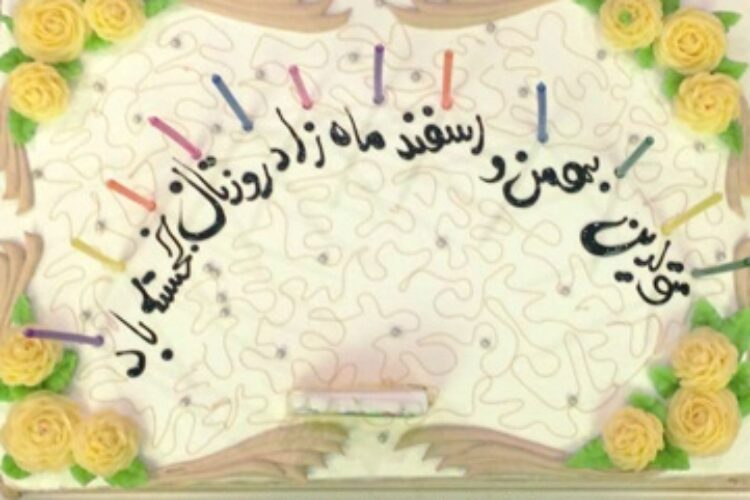 متولدین بهمن و رسفند ماه زادروزتان خجسته باد